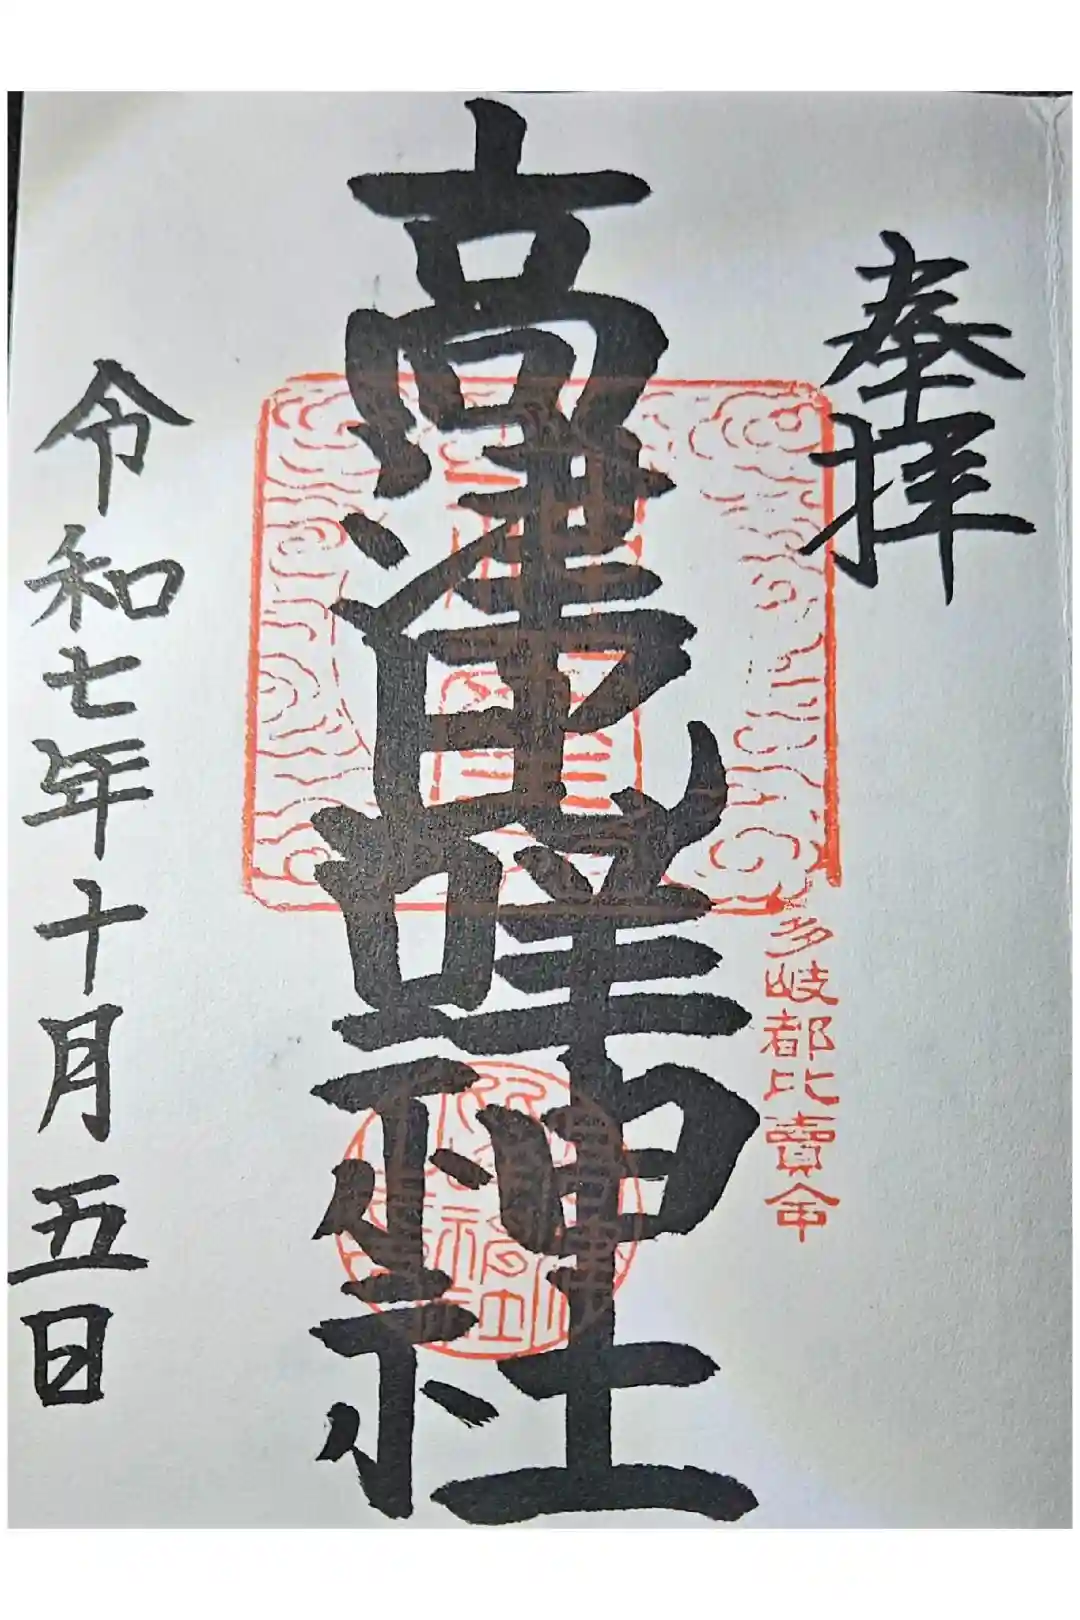 奉拝
高津比咩神社
多岐都比賣命
令和七年十月五日